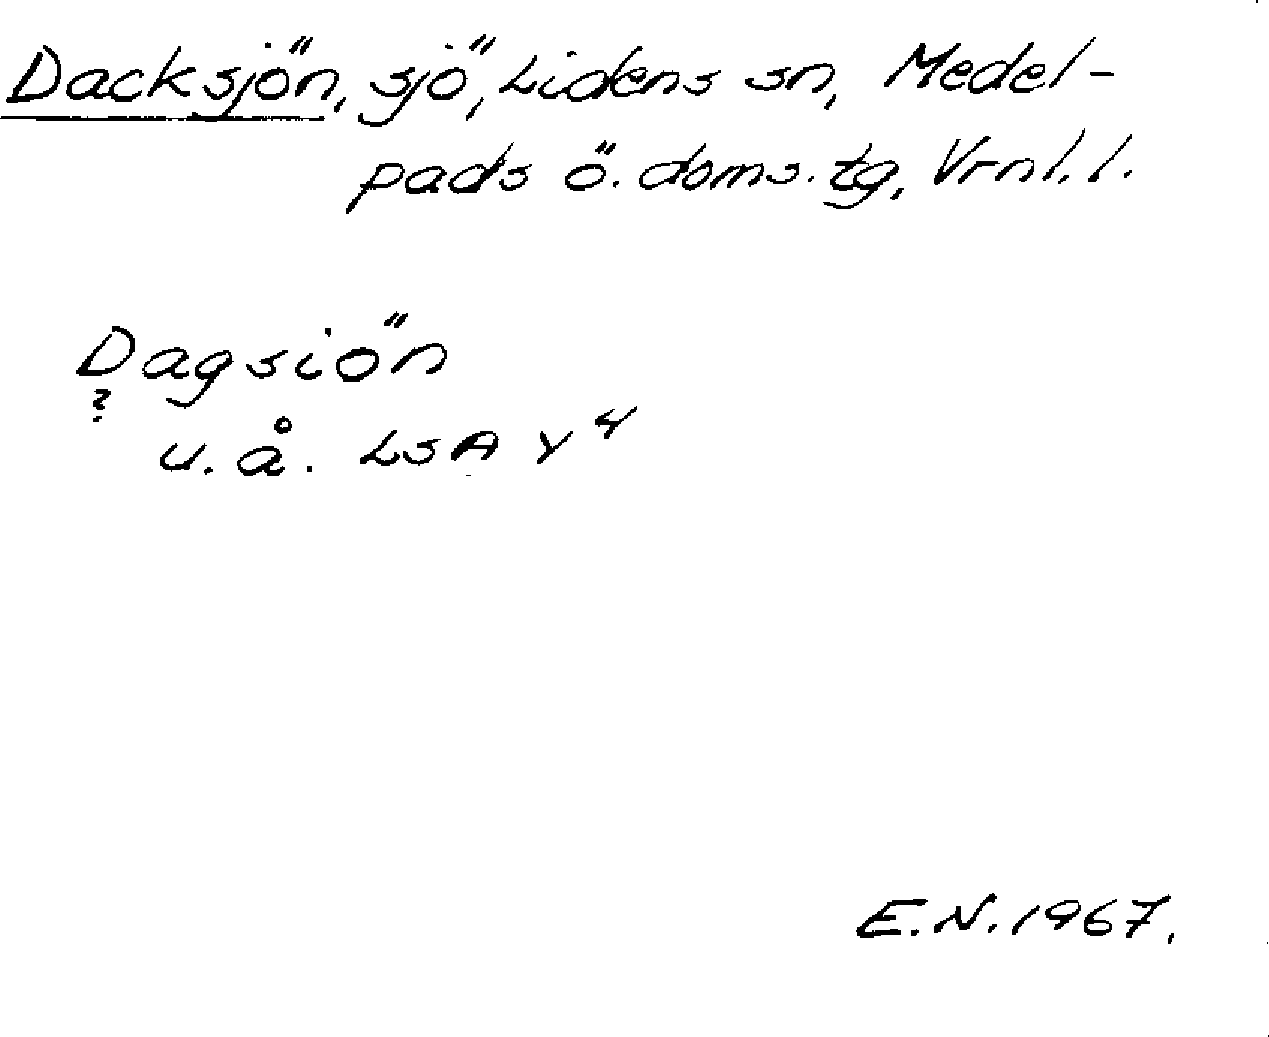 Dacksjön, sjö, Lidens sn, Medel-
pads ö. doms. tg, Vrnl. l.
Dagsiön
?
u. å. LSA Y 4
E.N. 1967.